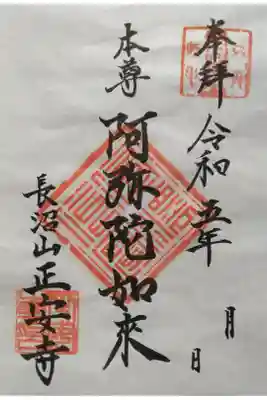 奉拝 令和五年 月 日
本尊 阿弥陀如來
長沼山 正安寺